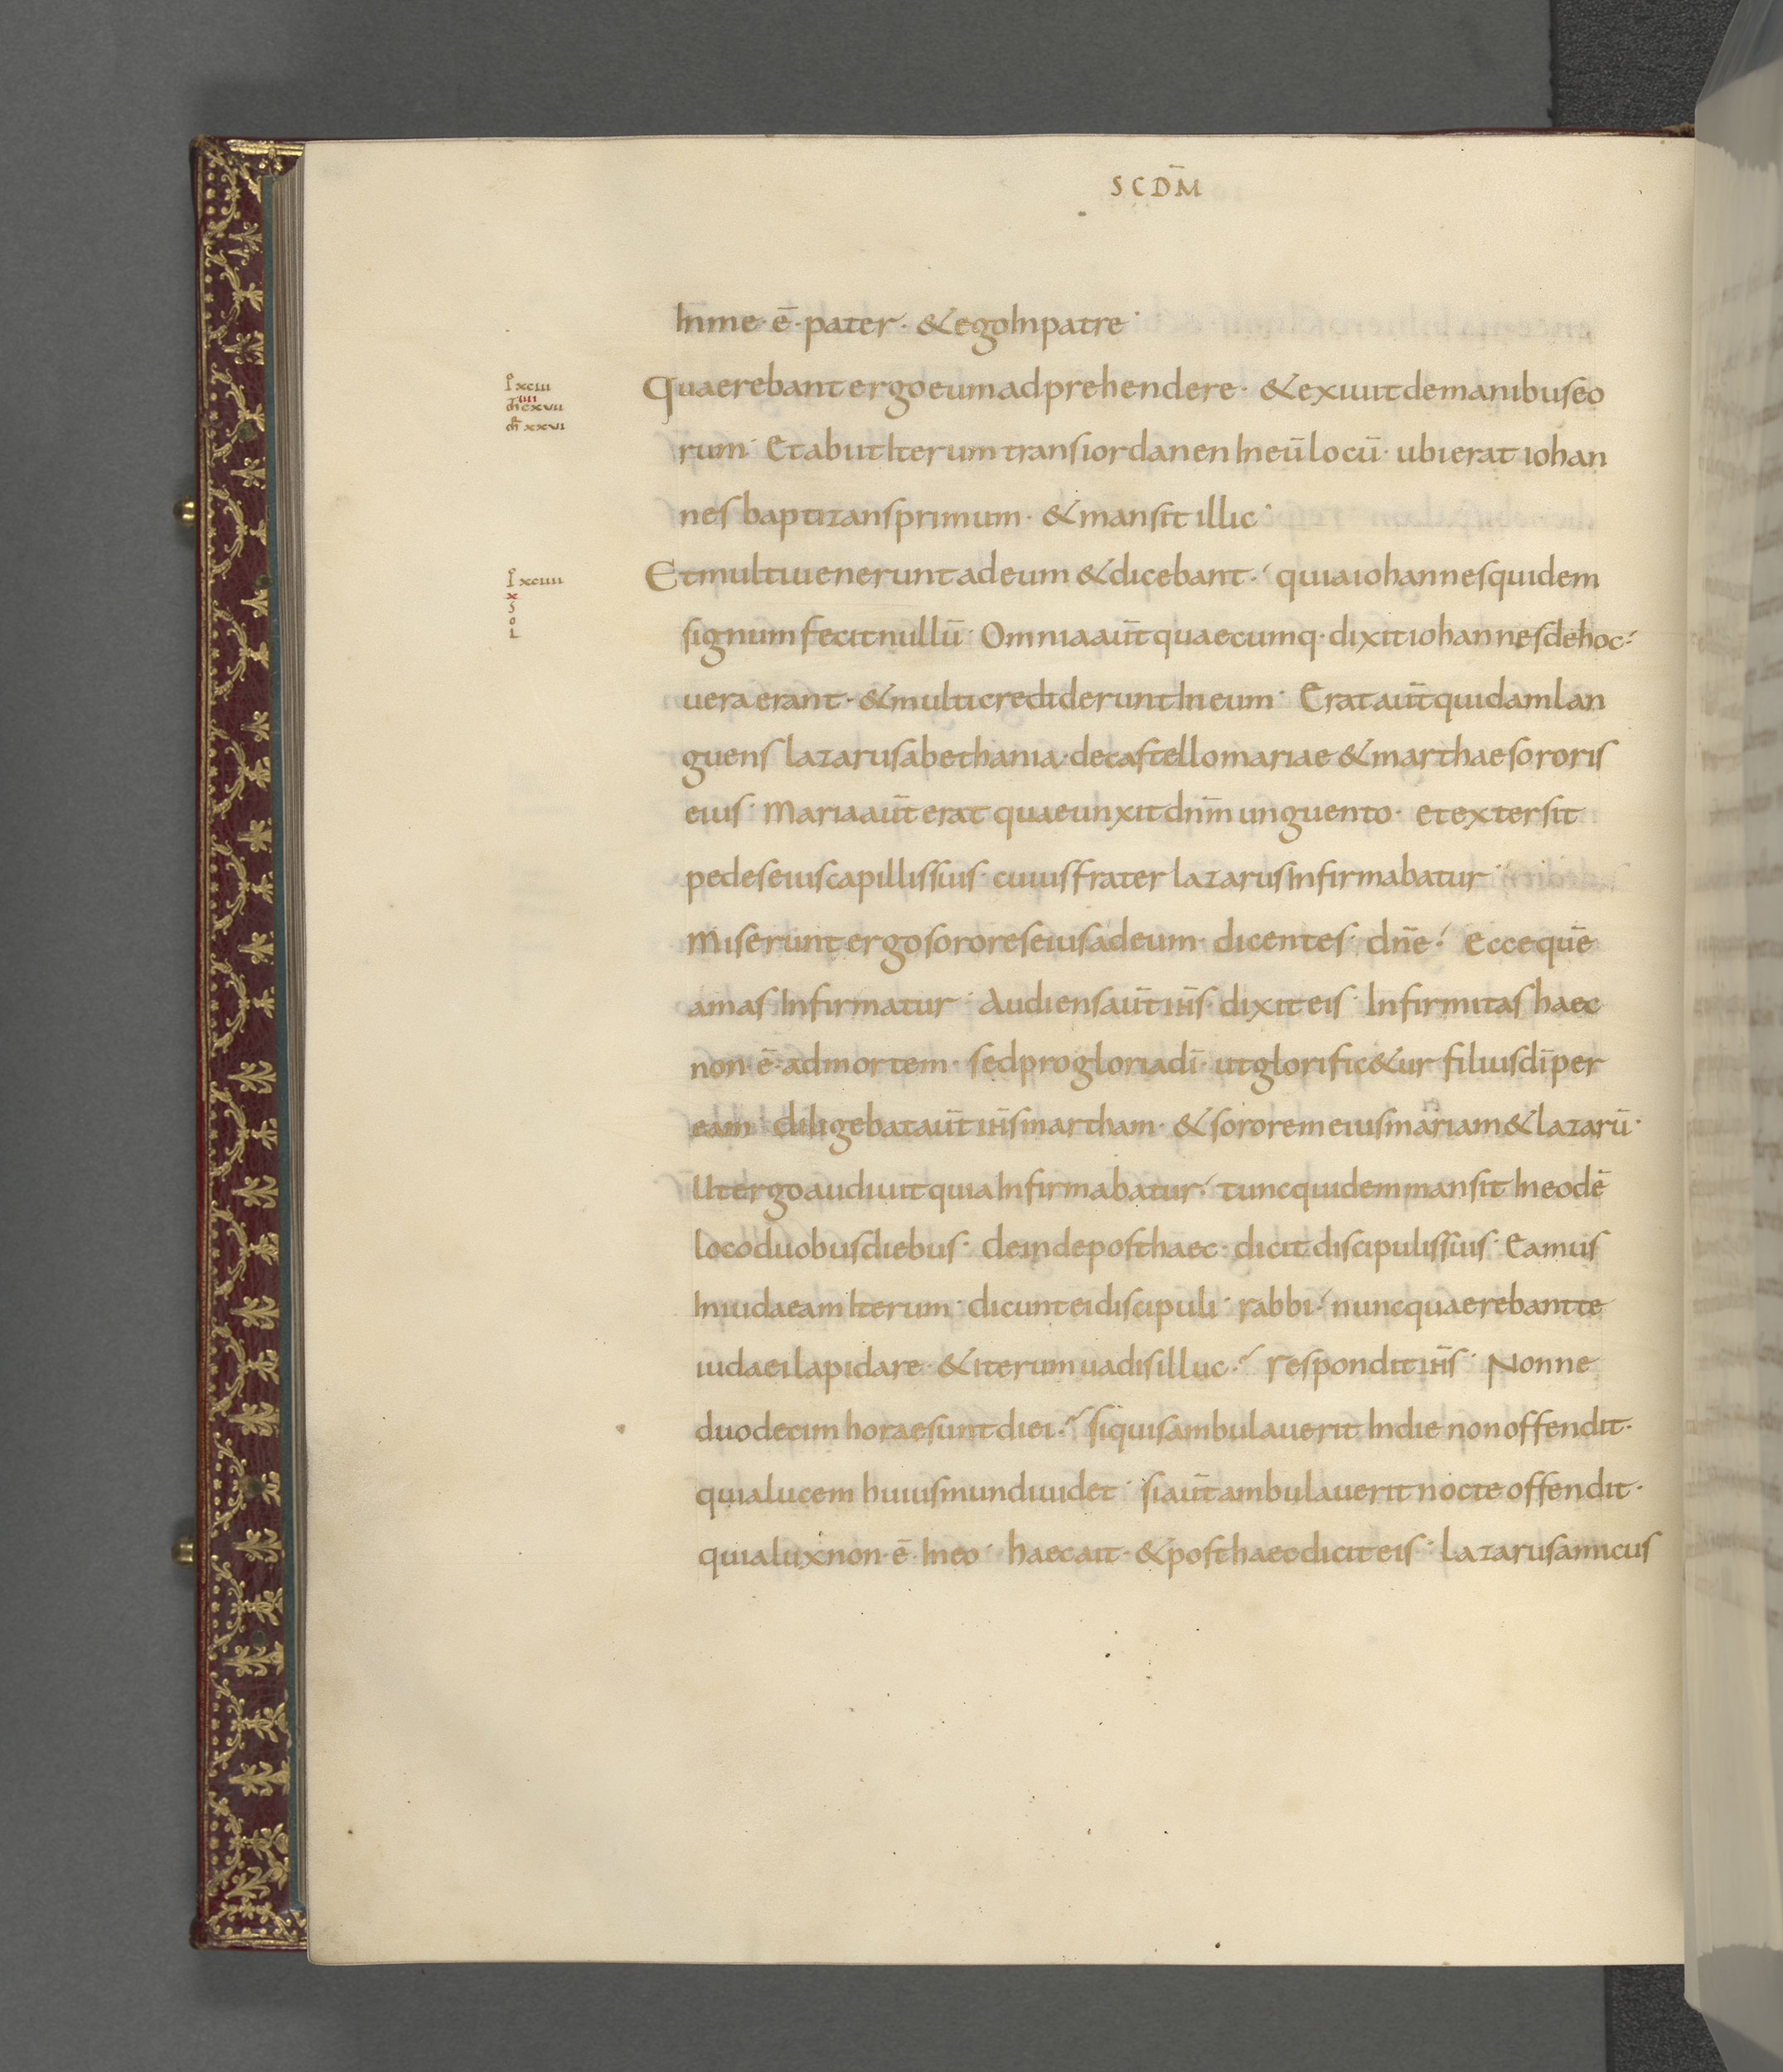 SCDM̄
In me · ē · pater · & ego In patre ·
I xciii
Quaerebant ergo eum adprehendere · & exiuit de manibus eo
iiii
m̄ cxvii
m̄ xxvi
rum · Et abiit Iterum trans iordanen In eū locū · ubi erat iohan
nes baptizans primum · & mansit illic ·
I xciiii
Et multi uenerunt ad eum & dicebant · quia iohannes quidem
x
S
o
L
signum fecit nullū · Omnia aūt quaecumq · dixit iohannes de hoc ·
uera erant · & multi crediderunt In eum · Erat aūt quidam lan
guens lazarus a bethania · de castello mariae & marthae sororis
eius · Maria aūt erat quae unxit dn̄m unguento · et extersit
pedes eius capillis suis · cuius frater lazarus Infirmabatur ·
Miserunt ergo sorores eius ad eum · dicentes · dn̄e · Ecce quē
amas Infirmatur · Audiens aūt ih̄s · dixit eis · Infirmitas haec
non · ē · ad mortem · sed pro gloria dī · ut glorific&ur filius dī per
eam · diligebat aūt ih̄s martham · & sororem eius mariam & lazarū ·
Ut ergo audiuit quia Infirmabatur · tunc quidem mansit In eodē
loco duobus diebus · deinde post haec · dicit discipulis suis · Eamus
In iudaeam Iterum · dicunt ei discipuli · rabbi · nunc quaerebant te
iudaei lapidare · & iterum uadis illuc · respondit ih̄s · Nonne
duodecim horae sunt diei · si quis ambulauerit In die non offendit ·
quia lucem huius mundi uidet · si aūt ambulauerit nocte offendit ·
quia lux non · ē · In eo · haec ait · & post haec dicit eis · lazarus amicus